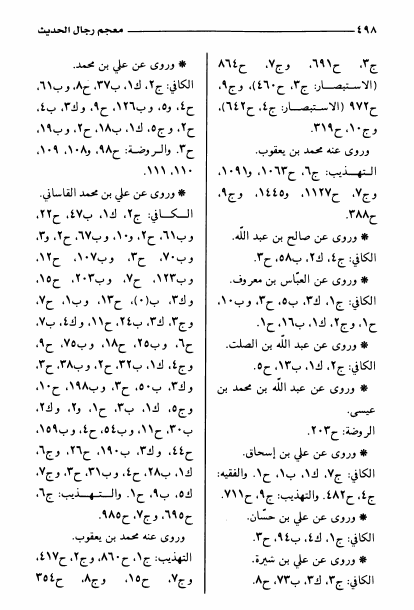 ٤٩٨ معجم رجال الحديث
ج٣، ح٦٩١، وج٧، ح٨٦٤
(الاستبصار: ج٣، ح٤٦٠)، وج٩،
ح٩٧٢ (الاستبصار: ج٤، ح٦٤٢)،
وج١٠، ح٣١٩.
وروى عنه محمد بن يعقوب.
التهذيب: ج٦، ح١٠٦٣، و١٠٩١،
وج٧، ح١١٢٧، و١٤٤٥، وج٩،
ح٣٨٨.
* وروى عن صالح بن عبد اللّه.
الكافي: ج٤، ك٢، ب٥٨، ح٣.
* وروى عن العبّاس بن معروف.
الكافي: ج١، ك٣، ب٥، ح٣، وب١٠،
ح١، وج٢، ك١، ب١٦، ح١.
* وروى عن عبد اللّه بن الصلت.
الكافي: ج٢، ك١، ب١٣، ح٥.
* وروى عن عبد اللّه بن محمد بن
عيسى.
الروضة: ح٢٠٣.
* وروى عن علي بن إسحاق.
الكافي: ج٧، ك١، ب١، ح١. والفقيه:
ج٤، ح٤٨٢. والتهذيب: ج٩، ح٧١١.
* وروى عن علي بن حسّان.
الكافي: ج١، ك٤، ب٩٤، ح٣.
* وروى عن علي بن شيرة.
الكافي: ج٣، ك٣، ب٧٣، ح٨.
* وروى عن علي بن محمد.
الكافي: ج٢، ك١، ب٣٧، ح٨، وب٦١،
ح٤، و٥، وب١٢٦، ح٩، وك٣، ب٤،
ح٢، وج٥، ك١، ب١٨، ح٢، وب١٩،
ح٣. والروضة: ح٩٨، و١٠٨، ١٠٩،
١١٠، ١١١.
* وروى عن علي بن محمد القاساني.
الكافي: ج٢، ك١، ب٤٧، ح٢٢،
وب٦١، ح٢، و١٠، وب٦٧، ح٢، و٣،
وب٧٠، ح٣، وب١٠٧، ح١٢،
وب١٢٣، ح٧، وب٢٠٣، ح١٥،
وك٣، ب(٠)، ح١٣، وب١، ح٧،
وج٣، ك٣، ب٢٤، ح١١، وك٤، ب٧،
ح٦، وب٢٥، ح١٨، وب٧٥، ح٩،
وج٤، ك١، ب٣٢، ح٢، وب٣٨، ح٣،
وك٣، ب٥٠، ح٣، وب١٩٨، ح١٠،
وج٥، ك١، ب٣، ح١، و٢، وك٢،
ب٣٠، ح١١، وب٥٤، ح٤، وب١٥٩،
ح٤٤، وك٣، ب١٩٠، ح٢٦، وج٦،
ك١، ب٢٨، ح٤، وب٣١، ح٣، وج٧،
ك٥، ب٩، ح١. والتهذيب: ج٦،
ح٦٩٥، وج٧، ح٩٨٥.
وروى عنه محمد بن يعقوب.
التهذيب: ج١، ح٨٦٠، وج٢، ح٤١٧،
وج٧، ح١٥، وج٨، ح٣٥٤